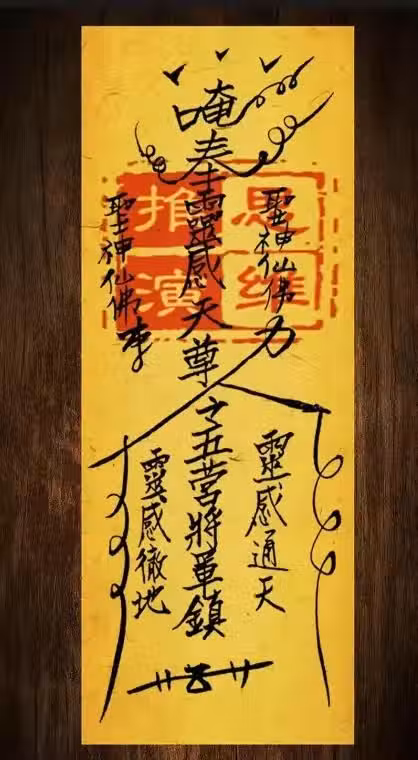 唵奉靈感天尊之五營將軍鎮
聖神仙佛力
聖神仙佛
靈感通天
靈感徹地
思维
推演